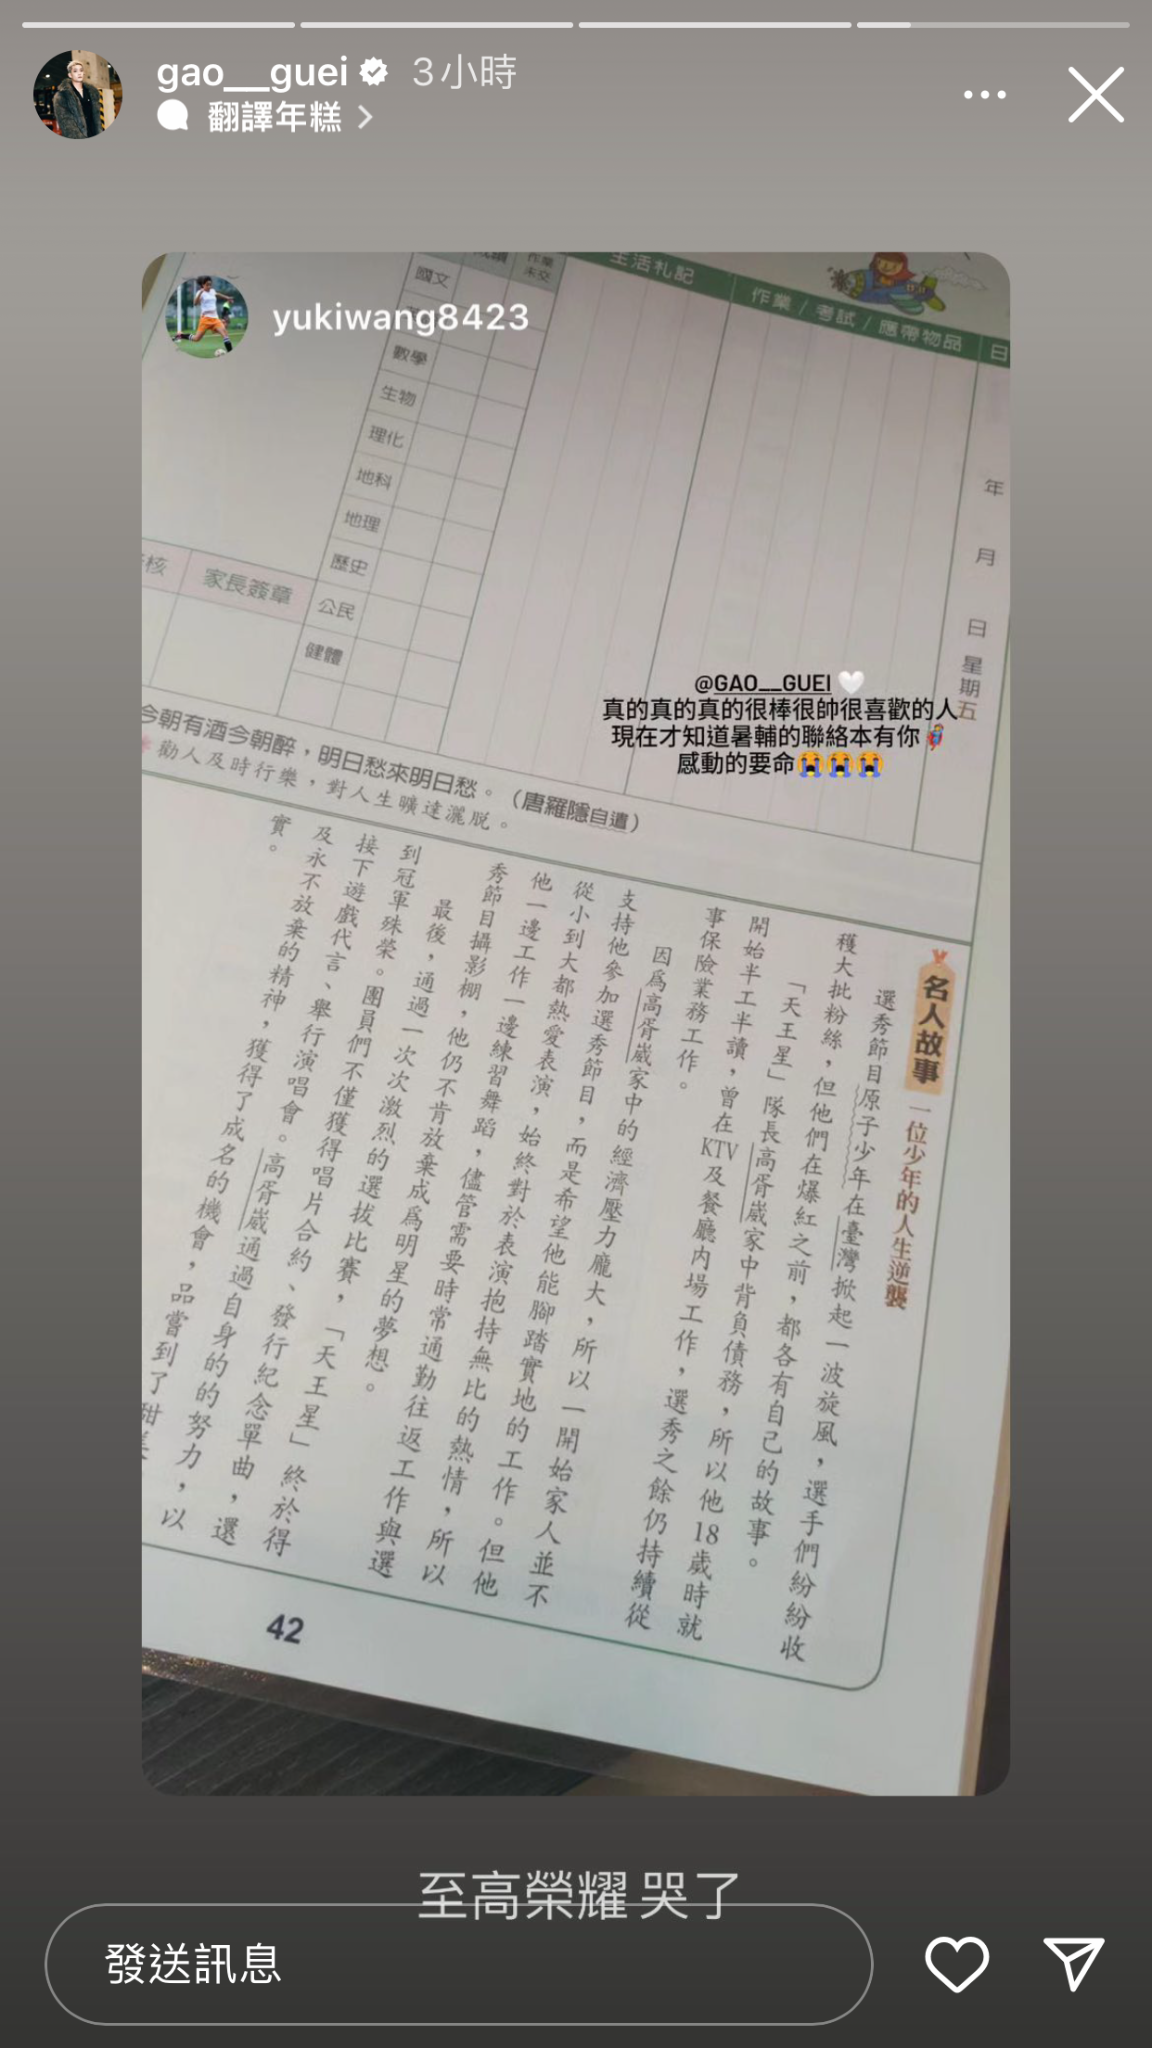 gao__guei 3小時
翻譯年糕
yukiwang8423
國文
數學
生物
理化
地科
地理
歷史
公民
健體
作業
未交
生活札記
作業/考試/應帶物品
日
年
月
日
星期五
核
家長簽章
@GAO__GUEI🤍
真的真的真的很棒很帥很喜歡的人
現在才知道暑輔的聯絡本有你
感動的要命😭😭😭
今朝有酒今朝醉,明日愁來明日愁。(唐羅隱自遣)
勸人及時行樂,對人生曠達灑脫。
名人故事 一位少年的人生逆襲
選秀節目原子少年在臺灣掀起一波旋風,選手們紛紛收
穫大批粉絲,但他們在爆紅之前,都各有自己的故事。
「天王星」隊長高胥崴家中背負債務,所以他18歲時就
開始半工半讀,曾在KTV及餐廳內場工作,選秀之餘仍持續從
事保險業務工作。
因為高胥崴家中的經濟壓力龐大,所以一開始家人並不
支持他參加選秀節目,而是希望他能腳踏實地的工作。但他
從小到大都熱愛表演,始終對於表演抱持無比的熱情,所以
他一邊工作一邊練習舞蹈,儘管需要時常通勤往返工作與選
秀節目攝影棚,他仍不肯放棄成為明星的夢想。
最後,通過一次次激烈的選拔比賽,「天王星」終於得
到冠軍殊榮。團員們不僅獲得唱片合約、發行紀念單曲,還
接下遊戲代言、舉行演唱會。高胥崴通過自身的的努力,以
及永不放棄的精神,獲得了成名的機會,品嘗到了甜美
實。
42
至高榮耀 哭了
發送訊息